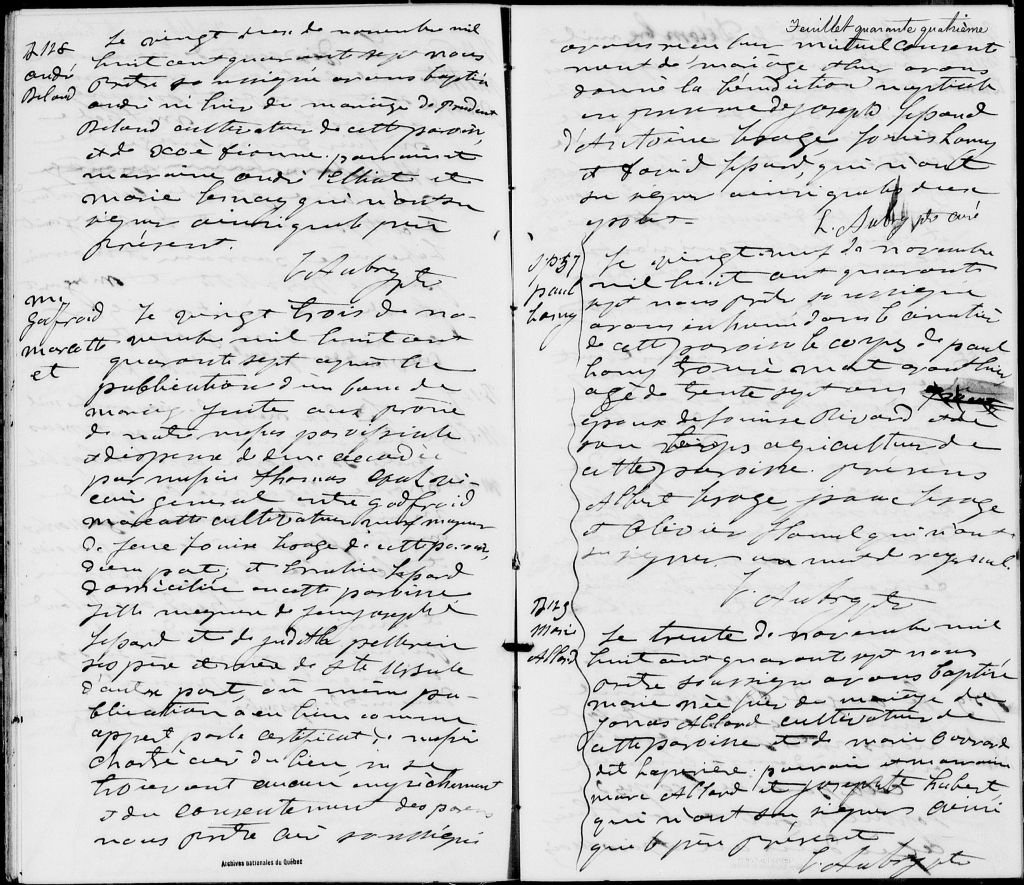 B 128
André
Beland
Le vingt deux de novembre mil
huit cent quarante sept nous
prêtre soussigné avons baptisé
andré né hier du mariage de prudent
Beland cultivateur de cette paroisse
et de parrain et
marraine andré Elliot et
marie qui n'ont su
signer ainsi que le père
présent.
L. Aubry ptre
M
Godfroid
Marcotte
et
Le vingt trois de no-
vembre mil huit cent
quarante sept après la
publication d'un banc de
mariage faite au prône
de notre messe paroissiale
et dispense de deux accordée
par messire thomas vi-
caire général entre godfroid
marcotte cultivateur veuf majeur
de feue Louise Lesage de cette paroisse
d'une part; et Emelie Lessard
domiciliée en cette paroisse
fille majeure de feu joseph
Lessard et de judith pellerin
ses père et mère de Ste Ursule
d'autre part, où même pu-
blication a eu lieu comme
appert par le certificat de messire
curé du lieu, ne se
trouvant aucun empêchement
et du consentement des parens
nous prêtre curé soussigné
Archives nationales du Québec
Feuillet quarante quatrième
avons reçu leur mutuel consente
ment de mariage et leur avons
donné la bénédiction nuptiale
en présence de joseph Lessard
d'Antoine Lesage Louis Lamy
et David Lessard, qui n'ont
su signer ainsi que les deux
époux
L. Aubry ptre curé
S 57
paul
Lamy
Le vingt neuf de novembre
mil huit cent quarante
sept nous prêtre soussigné
avons enhumé dans le cimetière
de cette paroisse le corps de paul
Lamy mort avant hier
agé de trente sept ans
époux de Louise Rivard
son agriculteur de
cette paroisse. présens
Albert Lesage, isaac Lesage
et Olivier Hamel qui n'ont
su signer.
L. Aubry ptre
B 129
Marie
Allard
Le trente de novembre mil
huit cent quarante sept nous
prêtre soussigné avons baptisé
marie née hier du mariage de
Allard cultivateur de
cette paroisse et de marie
dit Laperrière: parrain et marraine
marc Allard et josephte hubert
qui n'ont su signer ainsi
que le père présent
L. Aubry ptre